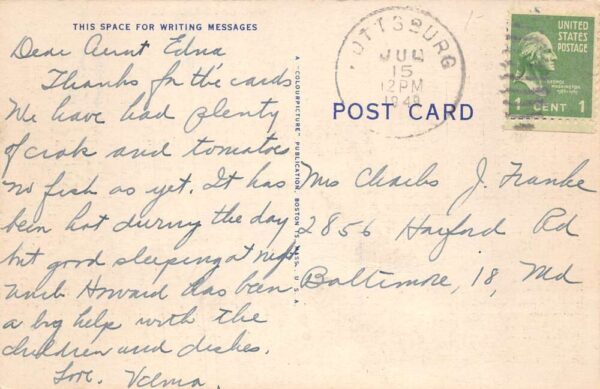 THIS SPACE FOR WRITING MESSAGES
Dear Aunt Edna
Thanks for the cards
We have had plenty
of crab and tomatoes
no fish as yet. It has
been hot during the day
but good sleeping at night
Uncle Howard has been
a big help with the
children and dishes.
Love. Velma.
A "COLOURPICTURE" PUBLICATION, BOSTON 15, MASS., U.S.A.
OTTSBURG
JUL
15
12 PM
1948
POST CARD
UNITED
STATES
POSTAGE
GEORGE
WASHINGTON
1 CENT 1
Mrs Charles J. Franke
2856 Harford Rd
Baltimore, 18, Md